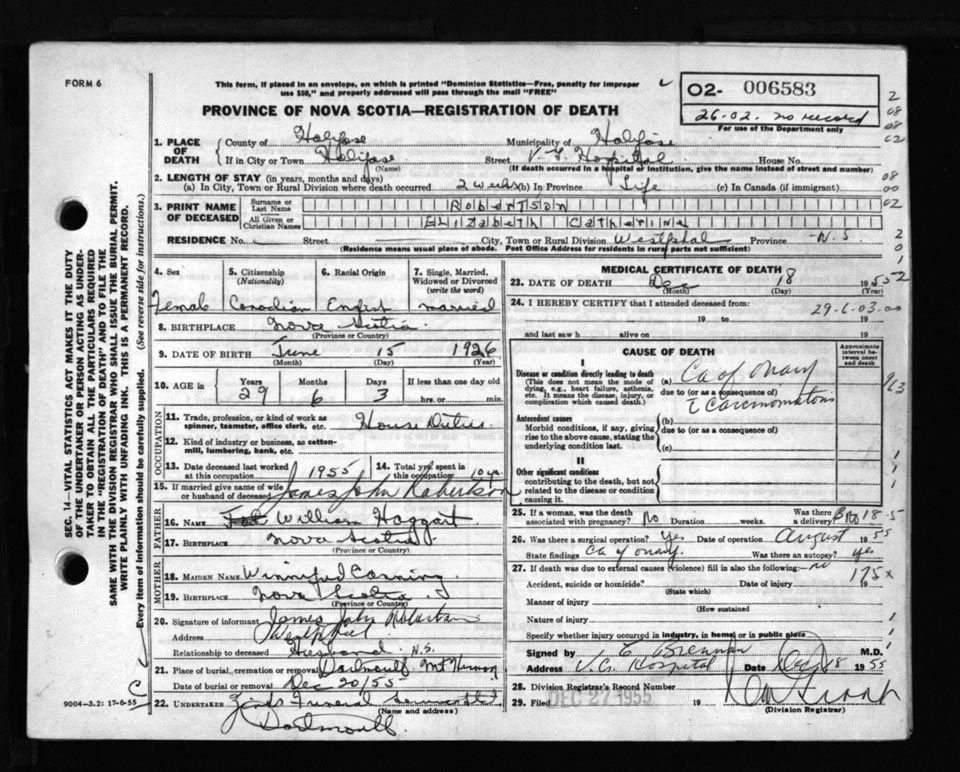 FORM 6
This form, if placed in an envelope, on which is printed "Dominion Statistics—Free, penalty for improper
use $50," and properly addressed will pass through the mail "FREE"
PROVINCE OF NOVA SCOTIA—REGISTRATION OF DEATH
O2- 006583
26-02. no record
For use of the Department only
1. PLACE OF DEATH
County of Halifax Municipality of Halifax
If in City or Town Halifax Street V. G. Hospital House No.
(Name) (If death occurred in a hospital or institution, give the name instead of street and number)
2. LENGTH OF STAY (in years, months and days)
(a) In City, Town or Rural Division where death occurred 2 weeks (b) In Province Life (c) In Canada (if immigrant)
3. PRINT NAME OF DECEASED
Surname or Last Name Robertson
All Given or Christian Names Elizabeth Catherine
RESIDENCE No. Street City, Town or Rural Division Westphal Province N.S
(Residence means usual place of abode. Post Office Address for residents in rural parts not sufficient)
4. Sex 5. Citizenship (Nationality) 6. Racial Origin 7. Single, Married, Widowed or Divorced (write the word)
Female Canadian married
8. BIRTHPLACE Nova Scotia
(Province or Country)
9. DATE OF BIRTH June 15 1926
(Month) (Day) (Year)
10. AGE in Years Months Days If less than one day old
29 6 3 hrs. or min.
OCCUPATION
11. Trade, profession, or kind of work as spinner, teamster, office clerk, etc. House Duties
12. Kind of industry or business, as cotton-mill, lumbering, bank, etc.
13. Date deceased last worked at this occupation 1955 14. Total yrs. spent in this occupation 10 yrs.
15. If married give name of wife or husband of deceased James John Robertson
FATHER
16. NAME William Haggart
17. BIRTHPLACE Nova Scotia
(Province or Country)
MOTHER
18. MAIDEN NAME Winnifred Corning
19. BIRTHPLACE Nova Scotia
(Province or Country)
20. Signature of informant James John Robertson
Address Westphal
Relationship to deceased Husband N.S.
21. Place of burial, cremation or removal Dartmouth Mt Hermon
Date of burial or removal Dec 20/55
22. UNDERTAKER Funeral
(Name and address)
Dartmouth
9004—3.2: 17-6-55
SEC. 14—VITAL STATISTICS ACT MAKES IT THE DUTY
OF THE UNDERTAKER OR PERSON ACTING AS UNDER-
TAKER TO OBTAIN ALL THE PARTICULARS REQUIRED
IN THE "REGISTRATION OF DEATH" AND TO FILE THE
SAME WITH THE DIVISION REGISTRAR WHO SHALL ISSUE THE BURIAL PERMIT.
WRITE PLAINLY WITH UNFADING INK. THIS IS A PERMANENT RECORD.
Every item of information should be carefully supplied. (See reverse side for instructions.)
MEDICAL CERTIFICATE OF DEATH
23. DATE OF DEATH Dec 18 1955
(Month) (Day) (Year)
24. I HEREBY CERTIFY that I attended deceased from:
29-6-03-00
19 to 19
and last saw h alive on 19
CAUSE OF DEATH
Approximate interval between onset and death
I
Disease or condition directly leading to death
(This does not mean the mode of dying, e.g., heart failure, asthenia, etc. It means the disease, injury, or complication which caused death.)
(a) Ca of Ovary
due to (or as a consequence of)
Antecedent causes
Morbid conditions, if any, giving rise to the above cause, stating the underlying condition last.
(b)
due to (or as a consequence of)
(c)
II
Other significant conditions
contributing to the death, but not related to the disease or condition causing it.
25. If a woman, was the death associated with pregnancy? No Duration weeks. Was there a delivery? No
26. Was there a surgical operation? Yes Date of operation August 1955
State findings Ca of ovary. Was there an autopsy? yes
27. If death was due to external causes (violence) fill in also the following:— no
Accident, suicide or homicide? Date of injury 19
(State which)
175x
Manner of injury
(How sustained
Nature of injury
Specify whether injury occurred in industry, in home, or in public place
Signed by E Brennan M.D.
Address V.G. Hospital Date Dec 18 1955
28. Division Registrar's Record Number
29. Filed DEC 27 1955 19
(Division Registrar)